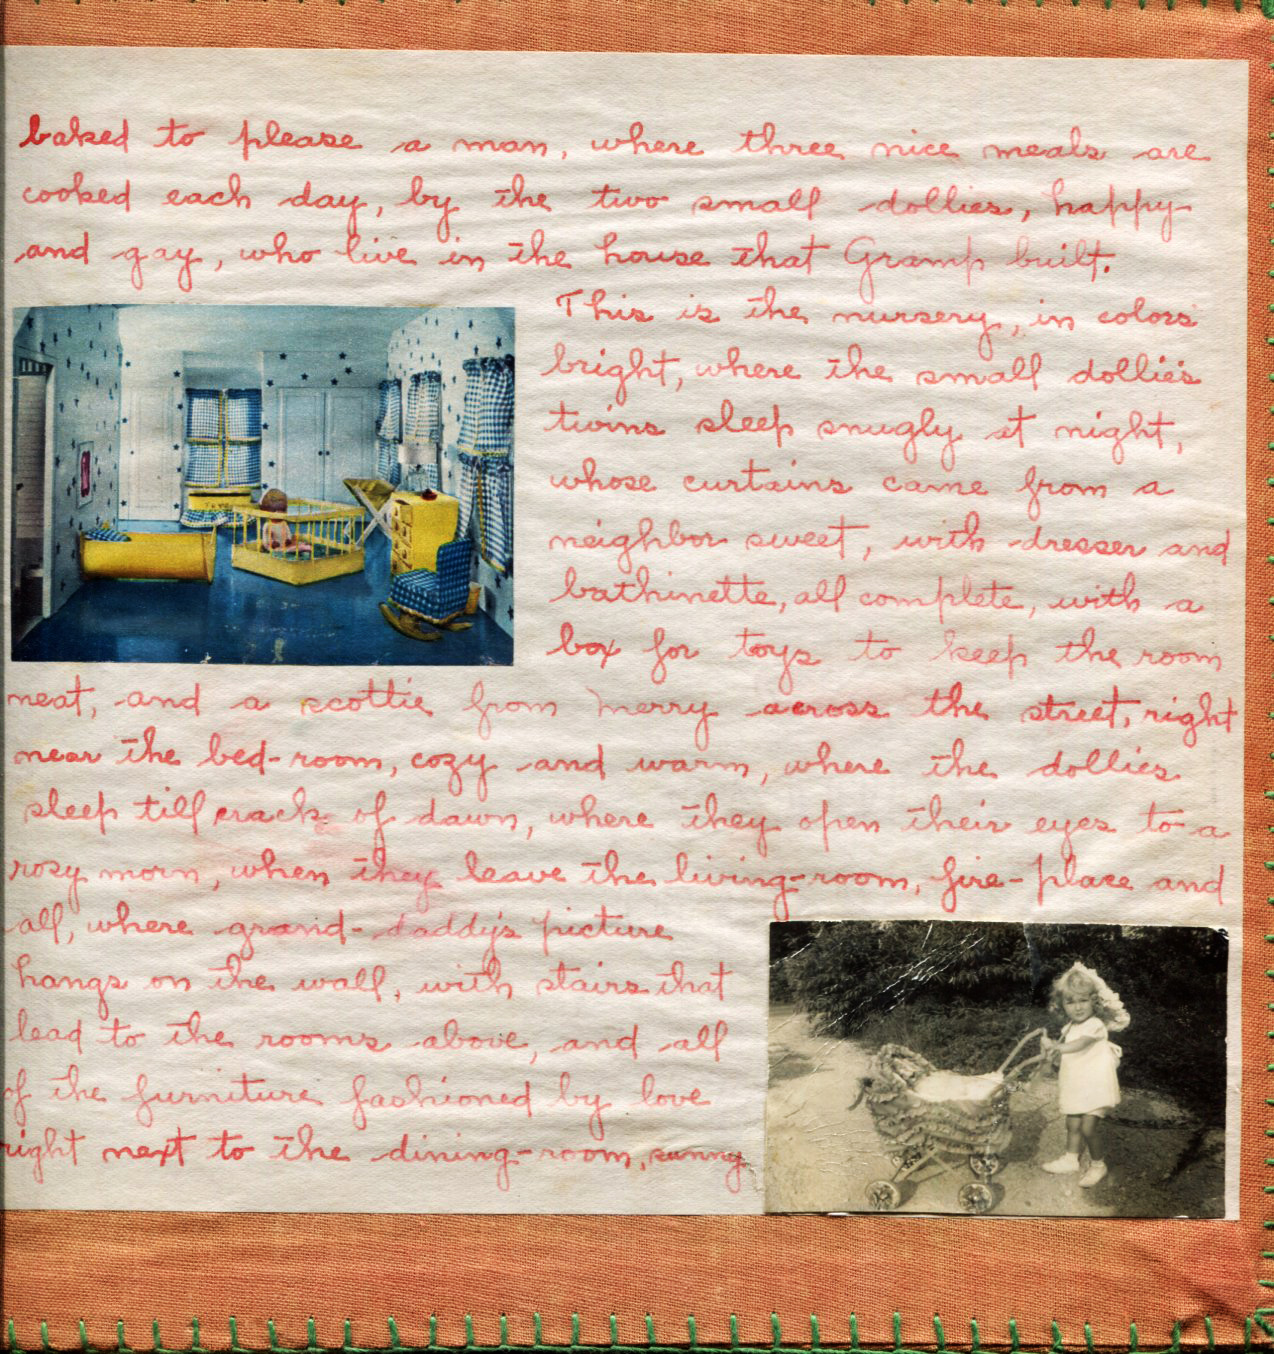 baked to please a man, where three nice meals are
cooked each day, by the two small dollies, happy
and gay, who live in the house that Gramp built.
This is the nursery, in colors
bright, where the small dollie's
twins sleep snugly at night,
whose curtains came from a
neighbor sweet, with dresser and
bathinette, all complete, with a
box for toys to keep the room
neat, and a scottie from Merry across the street, right
near the bed-room, cozy and warm, where the dollies
sleep till crack of dawn, where they open their eyes to a
rosy morn, when they leave the living-room, fire-place and
all, where grand-daddy's picture
hangs on the wall, with stairs that
lead to the rooms above, and all
of the furniture fashioned by love
right next to the dining-room, sunny